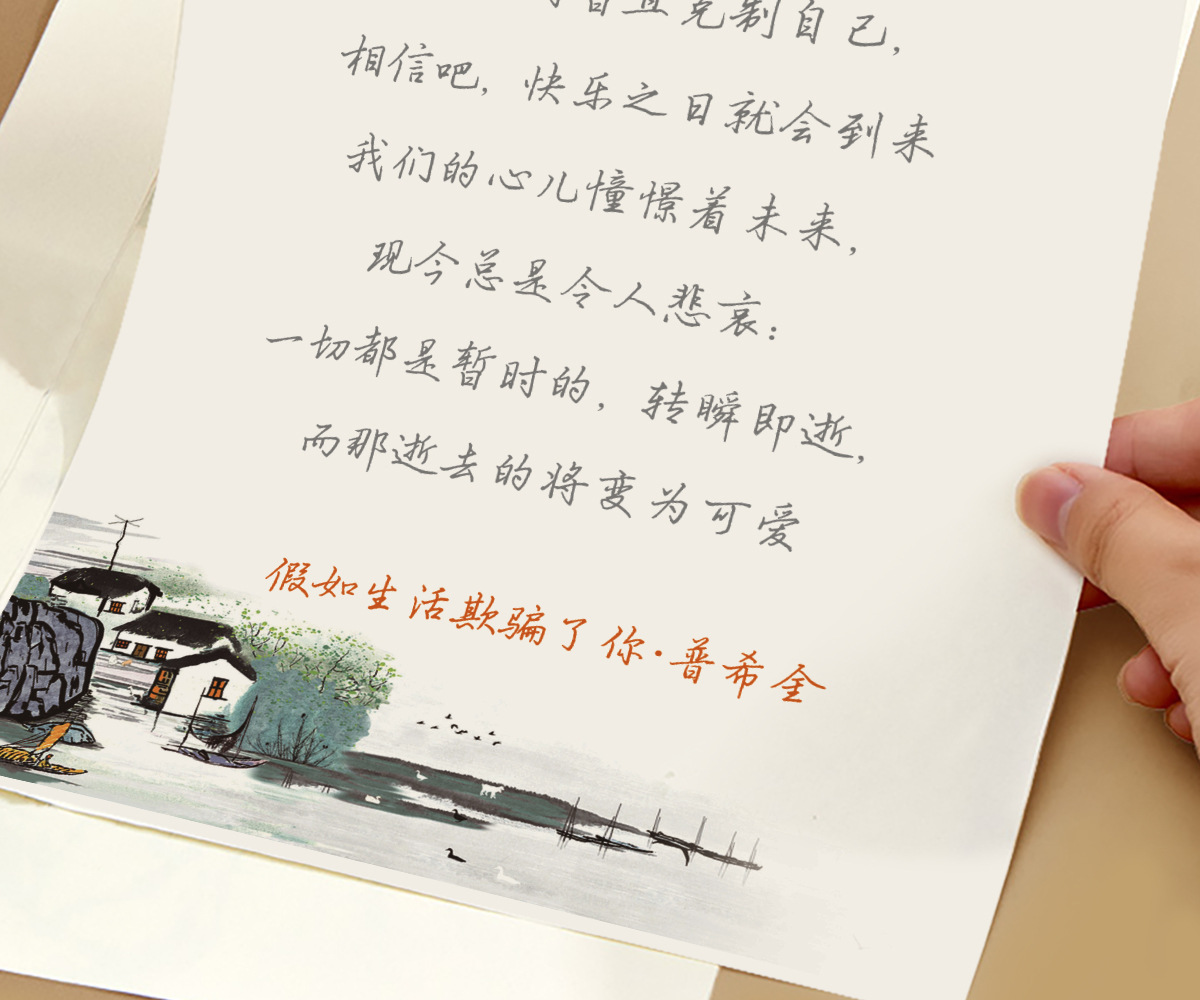 克制自己，
相信吧，快乐之日就会到来
我们的心儿憧憬着未来，
现今总是令人悲哀：
一切都是暂时的，转瞬即逝，
而那逝去的将变为可爱
假如生活欺骗了你·普希金